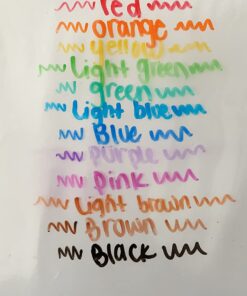 red
orange
yellow
Light green
green
Light blue
Blue
Purple
Pink
Light brown
Brown
Black